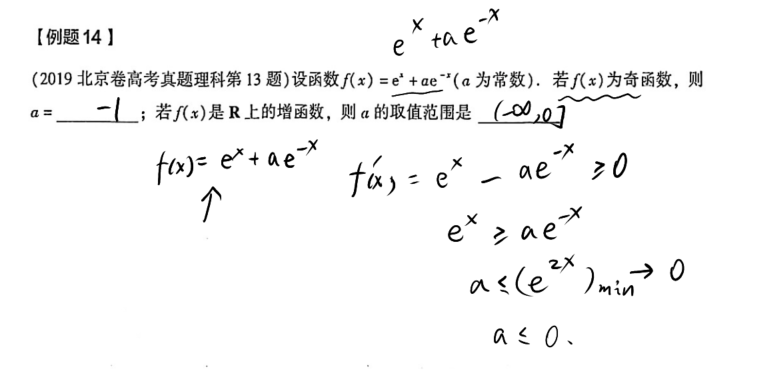 【例题14】
e^x + ae^{-x}
(2019 北京卷高考真题理科第 13 题)设函数f(x) = e^x + ae^{-x}(a 为常数). 若f(x)为奇函数, 则
a = -1 ; 若f(x)是 R 上的增函数, 则 a 的取值范围是 (-∞,0]
f(x) = e^x + ae^{-x}
f'(x) = e^x - ae^{-x} ≥ 0
↑
e^x ≥ ae^{-x}
a ≤ (e^{2x})_{min} → 0
a ≤ 0.